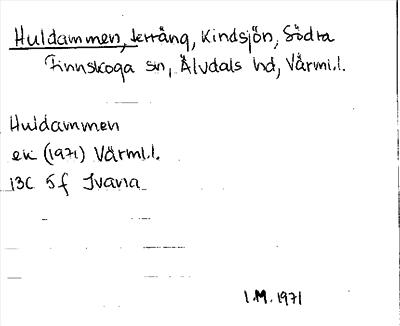 Huldammen, terräng, Kindsjön, Södra
Finnskoga sn, Älvdals hd, Värml.l.
Huldammen
ek (1971) Värml.l.
13C 5f Ivana
I.M. 1971